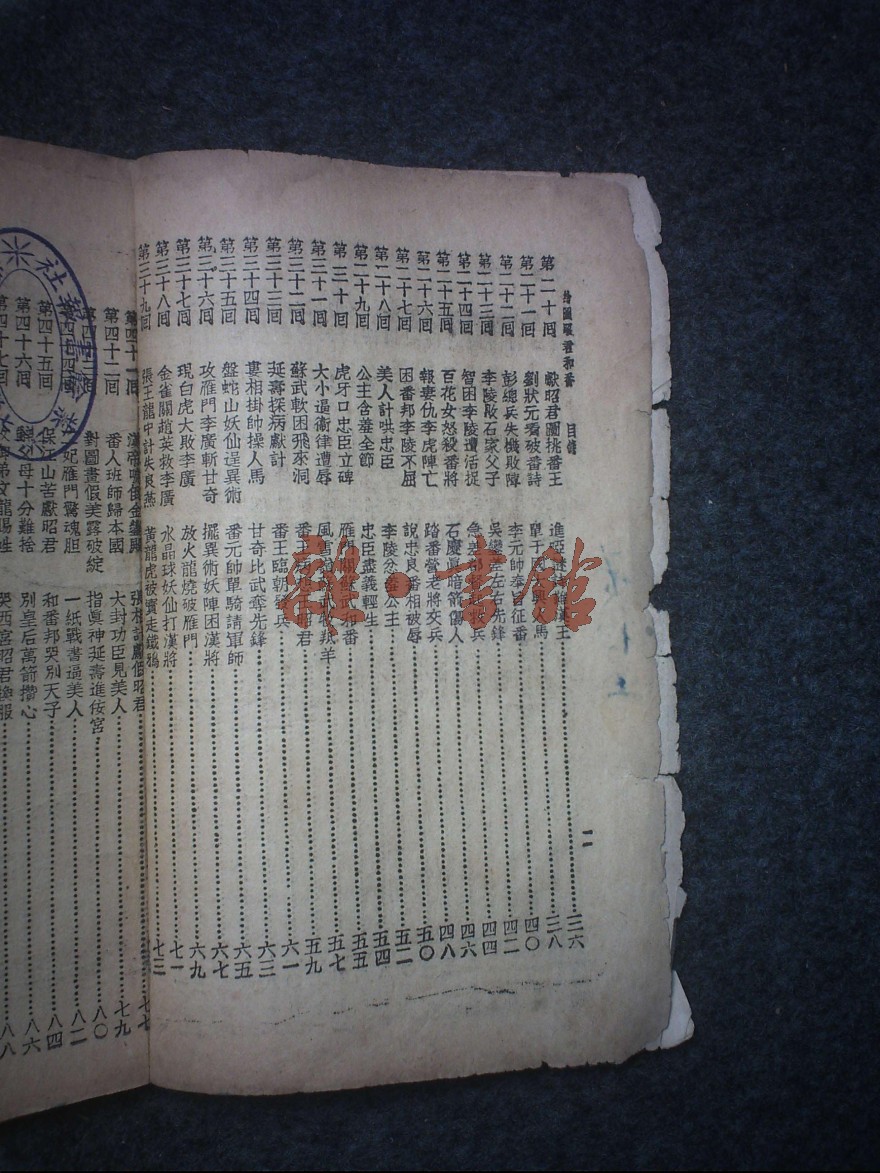 繪圖昭君和番 目錄
第二十回 獻昭君圖挑番王 進
漢王 三六
第二十一回 劉狀元看破番詩 單于國大興 馬 三八
第二十二回 彭總兵失機敗陣 李元帥奉旨征番 四〇
第二十三回 李陵敗石家父子 吳鑾差左右先鋒 四二
第二十四回 智困李陵遭活捉 急差 救兵 四四
第二十五回 百花女怒殺番將 石慶眞暗箭傷人 四六
第二十六回 報妻仇李虎陣亡 踏番營老將交兵 四八
第二十七回 困番邦李陵不屈 說忠良番相被辱 五〇
第二十八回 美人計哄忠臣 李陵忿羞公主 五二
第二十九回 公主含羞全節 忠臣盡義輕生 五四
第三十回 虎牙口忠臣立碑 雁門關蘇武和番 五五
第三十一回 大小逼衞律遭辱 風雪 武牧羝羊 五七
第三十二回 蘇武軟困飛來洞 番王 昭君 五九
第三十三回 延壽探病獻計 番王臨朝發兵 六一
第三十四回 婁相掛帥操人馬 甘奇比武奪先鋒 六三
第三十五回 盤蛇山妖仙逞異術 番元帥單騎請軍師 六五
第三十六回 攻雁門李廣斬甘奇 擺異術妖陣困漢將 六七
第三十七回 現白虎大敗李廣 放火龍燒破雁門 六九
第三十八回 金雀關趙英救李廣 水晶球妖仙打漢將 七一
第三十九回 張王龍中計失良燕 黃龍虎被實走鐵鴉 七三
二
第四十一回 昭君 七七
第四十二回 番人班師歸本國 大封功臣見美人 七九
對圖畫假美露破綻 指眞神延壽進佞宮 八〇
妃雁門驚魂胆 一紙戰書逼美人 八二
第四十五回 保 山苦獻昭君 和番邦哭別天子 八四
第四十六回 母十分難捨 別皇后萬箭攢心 八六
第四十七回 龍賜姓 哭西宮昭君換服 八八
社
雜·書館